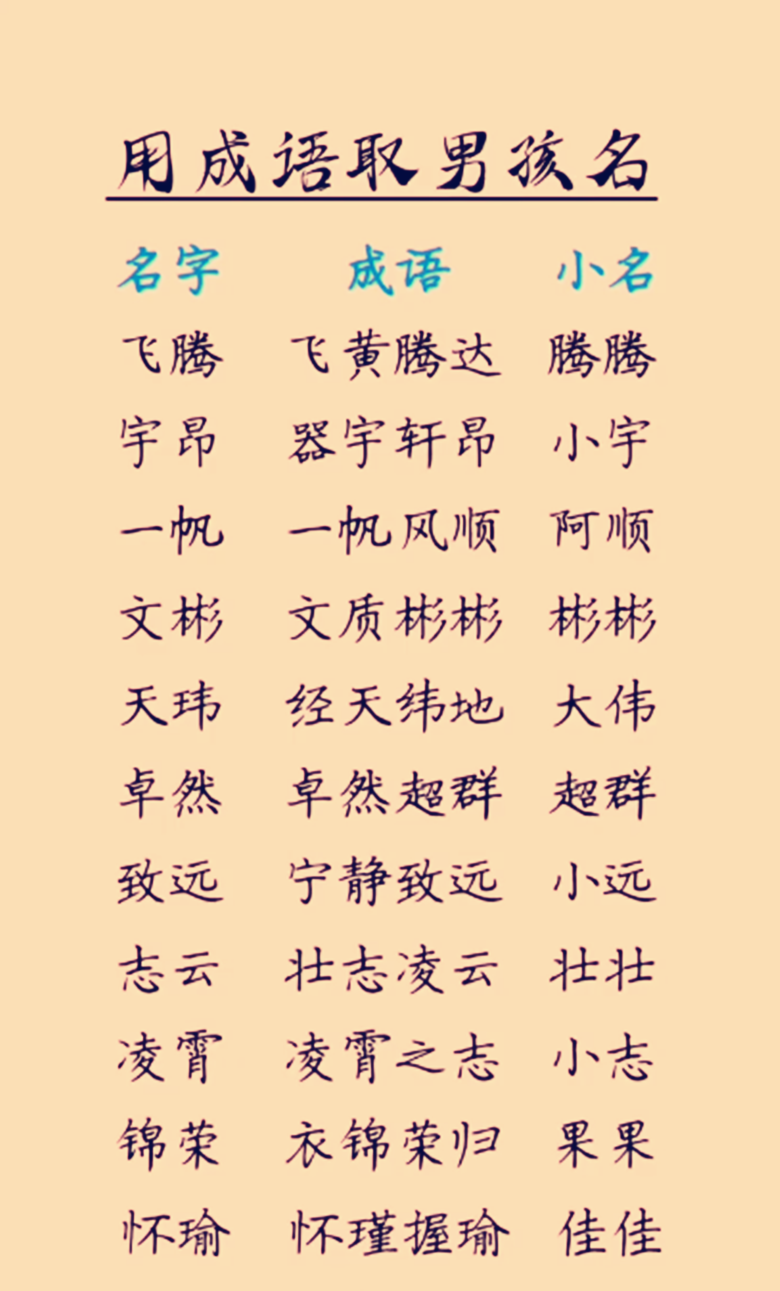 用成语取男孩名
名字 成语 小名
飞腾 飞黄腾达 腾腾
宇昂 器宇轩昂 小宇
一帆 一帆风顺 阿顺
文彬 文质彬彬 彬彬
天玮 经天纬地 大伟
卓然 卓然超群 超群
致远 宁静致远 小远
志云 壮志凌云 壮壮
凌霄 凌霄之志 小志
锦荣 衣锦荣归 果果
怀瑜 怀瑾握瑜 佳佳